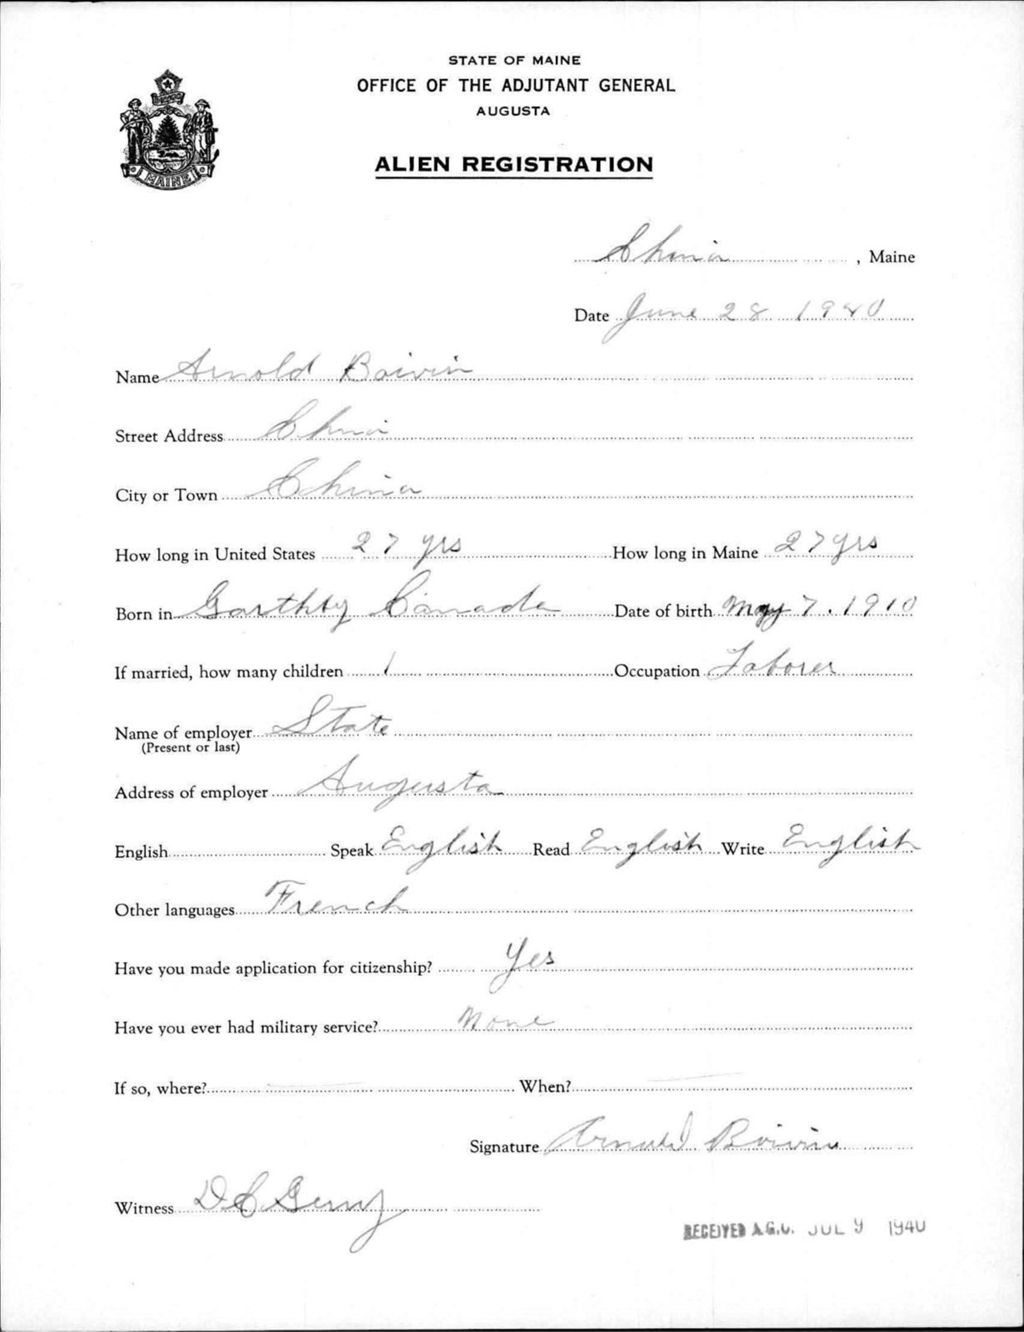 STATE OF MAINE
OFFICE OF THE ADJUTANT GENERAL
AUGUSTA
MAINE
ALIEN REGISTRATION
China, Maine
Date June 28 1940
Name Arnold Boivin
Street Address China
City or Town China
How long in United States 27 yrs How long in Maine 27 yrs
Born in Garthby Canada Date of birth May 7. 1910
If married, how many children 1 Occupation Laborer
Name of employer State
(Present or last)
Address of employer Augusta
English Speak English Read English Write English
Other languages French
Have you made application for citizenship? Yes
Have you ever had military service? None
If so, where? When?
Signature Arnold Boivin
Witness D C
RECEIVED A.G.O. JUL 9 1940